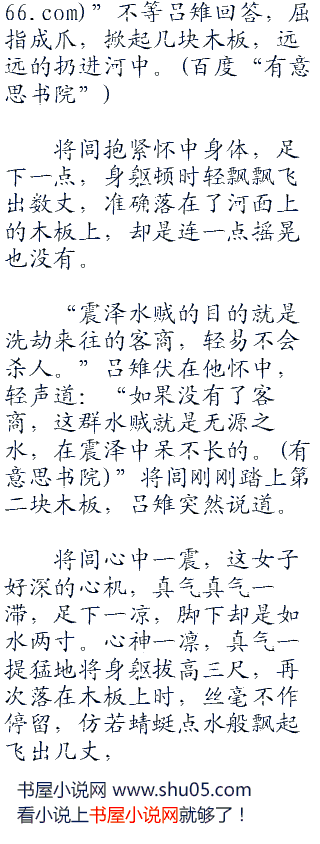 66.com)”不等吕雉回答，屈
指成爪，掀起几块木板，远
远的扔进河中。(百度“有意
思书院”)
将闾抱紧怀中身体，足
下一点，身躯顿时轻飘飘飞
出数丈，准确落在了河面上
的木板上，却是连一点摇晃
也没有。
“震泽水贼的目的就是
洗劫来往的客商，轻易不会
杀人。”吕雉伏在他怀中，
轻声道：“如果没有了客
商，这群水贼就是无源之
水，在震泽中呆不长的。(有
意思书院)”将闾刚刚踏上第
二块木板，吕雉突然说道。
将闾心中一震，这女子
好深的心机，真气真气一
滞，足下一凉，脚下却是如
水两寸。心神一凛，真气一
提猛地将身躯拔高三尺，再
次落在木板上时，丝毫不作
停留，仿若蜻蜓点水般飘起
飞出几丈，
书屋小说网 www.shu05.com
看小说上书屋小说网就够了！